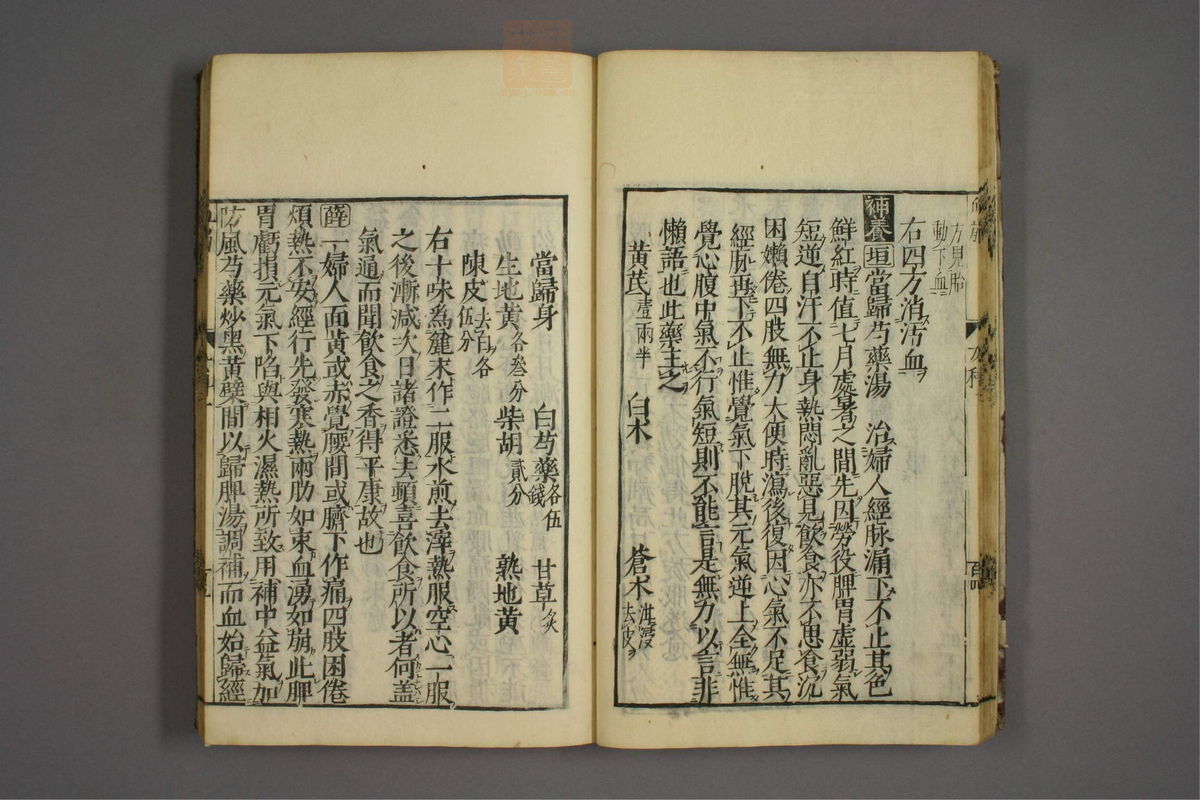 方見胎
動下血
右四方消污血
補養 垣當歸芍藥湯 治婦人經脉漏下不止其色
鮮紅時值七月處暑之間先因勞役脾胃虛弱氣
短逆自汗不止身熱悶亂惡見飲食亦不思食沉
困嬾倦四肢無力大便時瀉後復因心氣不足其
經脉再下不止惟覺氣下脫其元氣逆上全無惟
覺心腹中氣不行氣短則不能言是無力以言非
懶語也此藥主之
黃芪壹兩半 白术 蒼术泔浸去皮
當歸身 白芍藥各伍錢 甘草炙
生地黃各叁分 柴胡貳分 熟地黃
陳皮去白各伍分
右十味為麄末作二服水煎去滓熱服空心一服
之後漸減次日諸證悉去頓喜飲食所以者何盖
氣通而聞飲食之香得平康故也
薛 一婦人面黃或赤覺腰間或臍下作痛四肢困倦
煩熱不安經行先發寒熱兩肋如束血湧如崩此脾
胃虧損元氣下陷與相火濕熱所致用補中益氣加
防風芍藥炒黑黃蘗間以歸脾湯調補而血始歸經